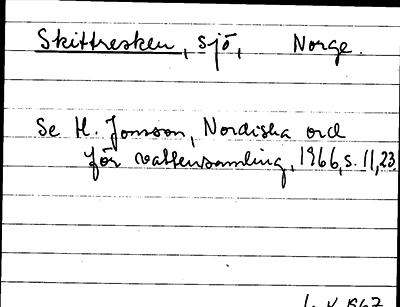 Skittresken, sjö, Norge.
Se H. Jonsson, Nordiska ord
för vattensamling, 1966, s. 11, 23.
1967